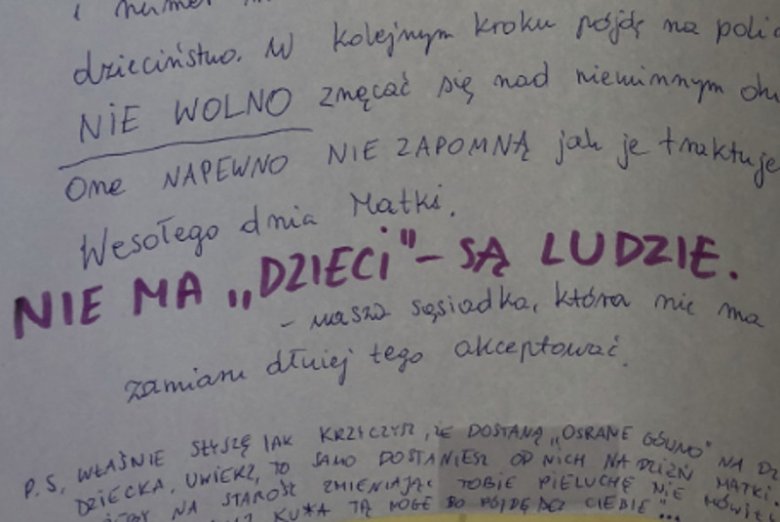 i numer
dzieciństwo. W kolejnym kroku pójdę na polic
NIE WOLNO znęcać się nad niewinnym
One NAPEWNO NIE ZAPOMNĄ jak je traktuje
Wesołego dnia Matki.
NIE MA „DZIECI" - SĄ LUDZIE.
- wasza sąsiadka, która nie ma
zamiaru dłużej tego akceptować.
P.S. WŁAŚNIE SŁYSZĘ JAK KRZYCZYSZ, ŻE DOSTANĄ „OSRANE GÓWNO" NA DZ
DZIECKA. UWIERZ, TO SAMO DOSTANIESZ OD NICH NA DZIEŃ MATKI
NA STAROŚĆ ZMIENIAJĄC TOBIE PIELUCHĘ NIE MÓWIŁ
KU*A TĄ NOGĘ BO PÓJDĘ BEZ CIEBIE"...